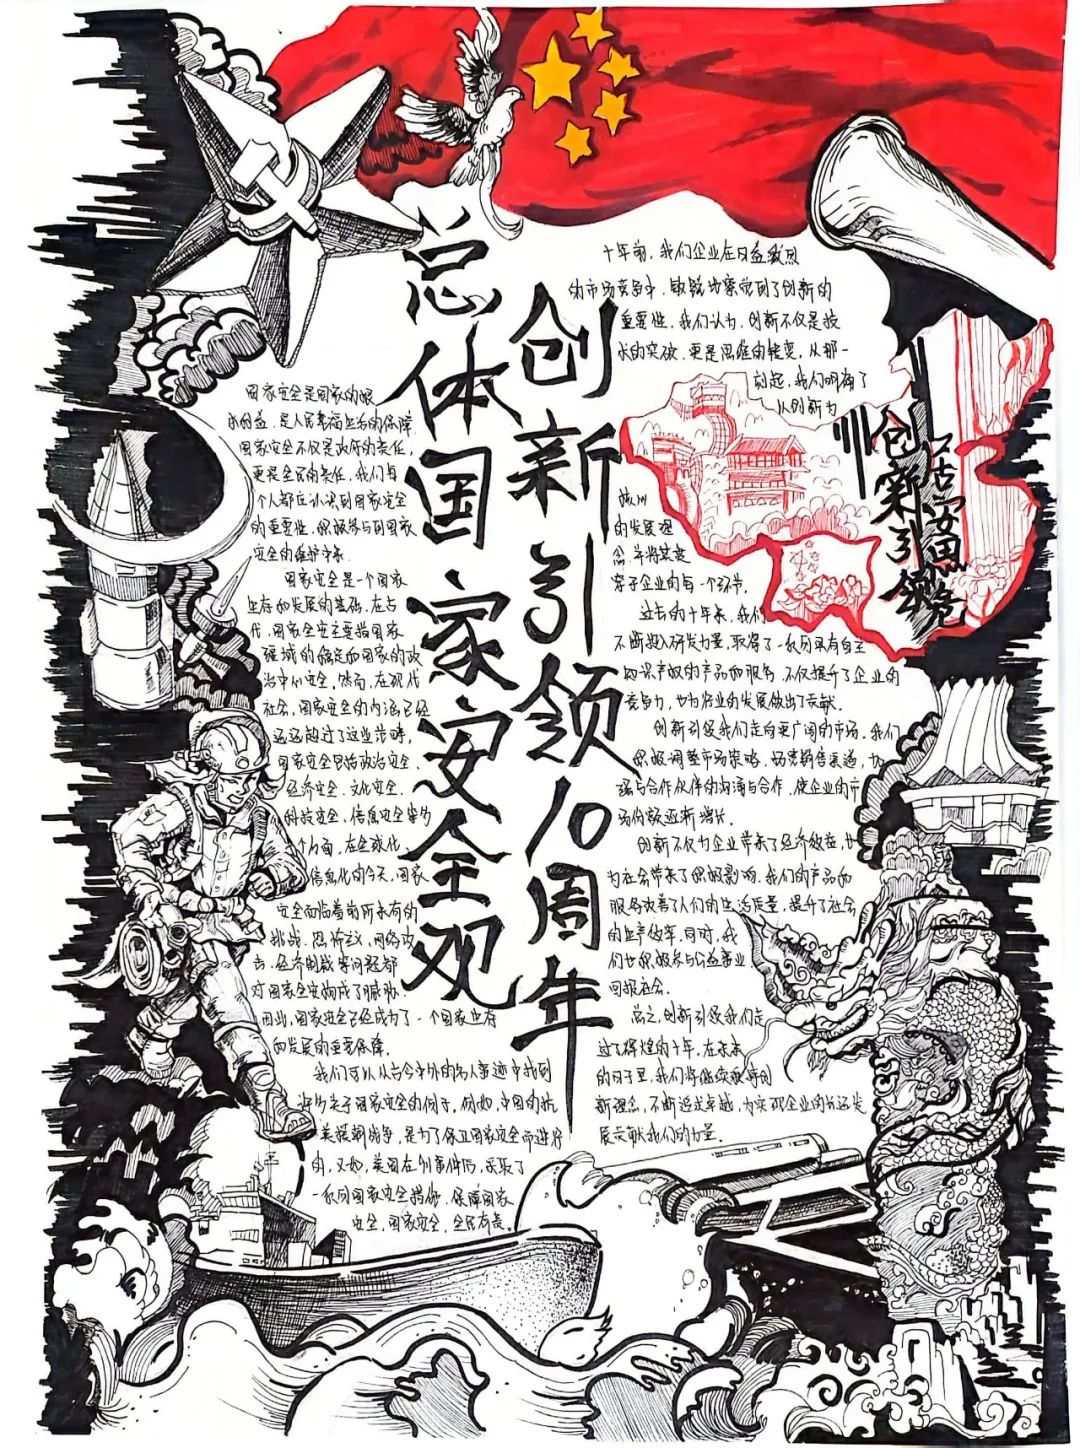 总体国家安全观
创新引领10周年
国家安全是国家的根
本利益，是人民幸福生活的保障，
国家安全不仅是政府的责任，
更是全民的责任，我们每
个人都应认识到国家安全
的重要性，积极参与到国家
安全的维护中来
国家安全是一个国家
生存和发展的基础，在古
代，国家安全主要指国家
疆域的稳定和国家的政
治中心安全，然而，在现代
社会，国家安全的内涵已经
远远超过了这些范畴，
国家安全包括政治安全、
经济安全、文化安全、
科技安全、信息安全等多
个方面，在全球化、
信息化的今天，国家
安全面临着前所未有的
挑战，恐怖主义、网络攻
击、经济制裁等问题都
对国家安全构成了威胁，
因此，国家安全已经成为了一个国家生存
和发展的重要保障。
我们可以从古今中外的名人事迹中找到
许多关于国家安全的例子，例如，中国的抗
美援朝战争，是为了保卫国家安全而进行
的，又如，美国在911事件后，采取了
一系列国家安全措施，保障国家
安全，国家安全，全民有责。
十年前，我们企业在日益激烈
的市场竞争中，敏锐地察觉到了创新的
重要性，我们认为，创新不仅是技
术的突破，更是思维的转变，从那一
刻起，我们明确了
以创新为
的发展理
念，并将其贯
穿于企业的每一个环节，
过去的十年来，我们
不断投入研发力量，取得了一系列具有自主
知识产权的产品和服务，不仅提升了企业的
竞争力，也为行业的发展做出了贡献，
创新引领我们走向更广阔的市场，我们
积极调整市场策略，拓宽销售渠道，加
强与合作伙伴的沟通与合作，使企业的市
场份额逐渐增长，
创新不仅为企业带来了经济效益，也
为社会带来了积极影响，我们的产品和
服务改善了人们的生活质量，提升了社会
的生产效率，同时，我
们也积极参与公益事业
回报社会，
总之，创新引领我们走
过了辉煌的十年，在未来
的日子里，我们将继续秉持创
新理念，不断追求卓越，为实现企业的长远发
展贡献我们的力量。
居安思危
创新引领